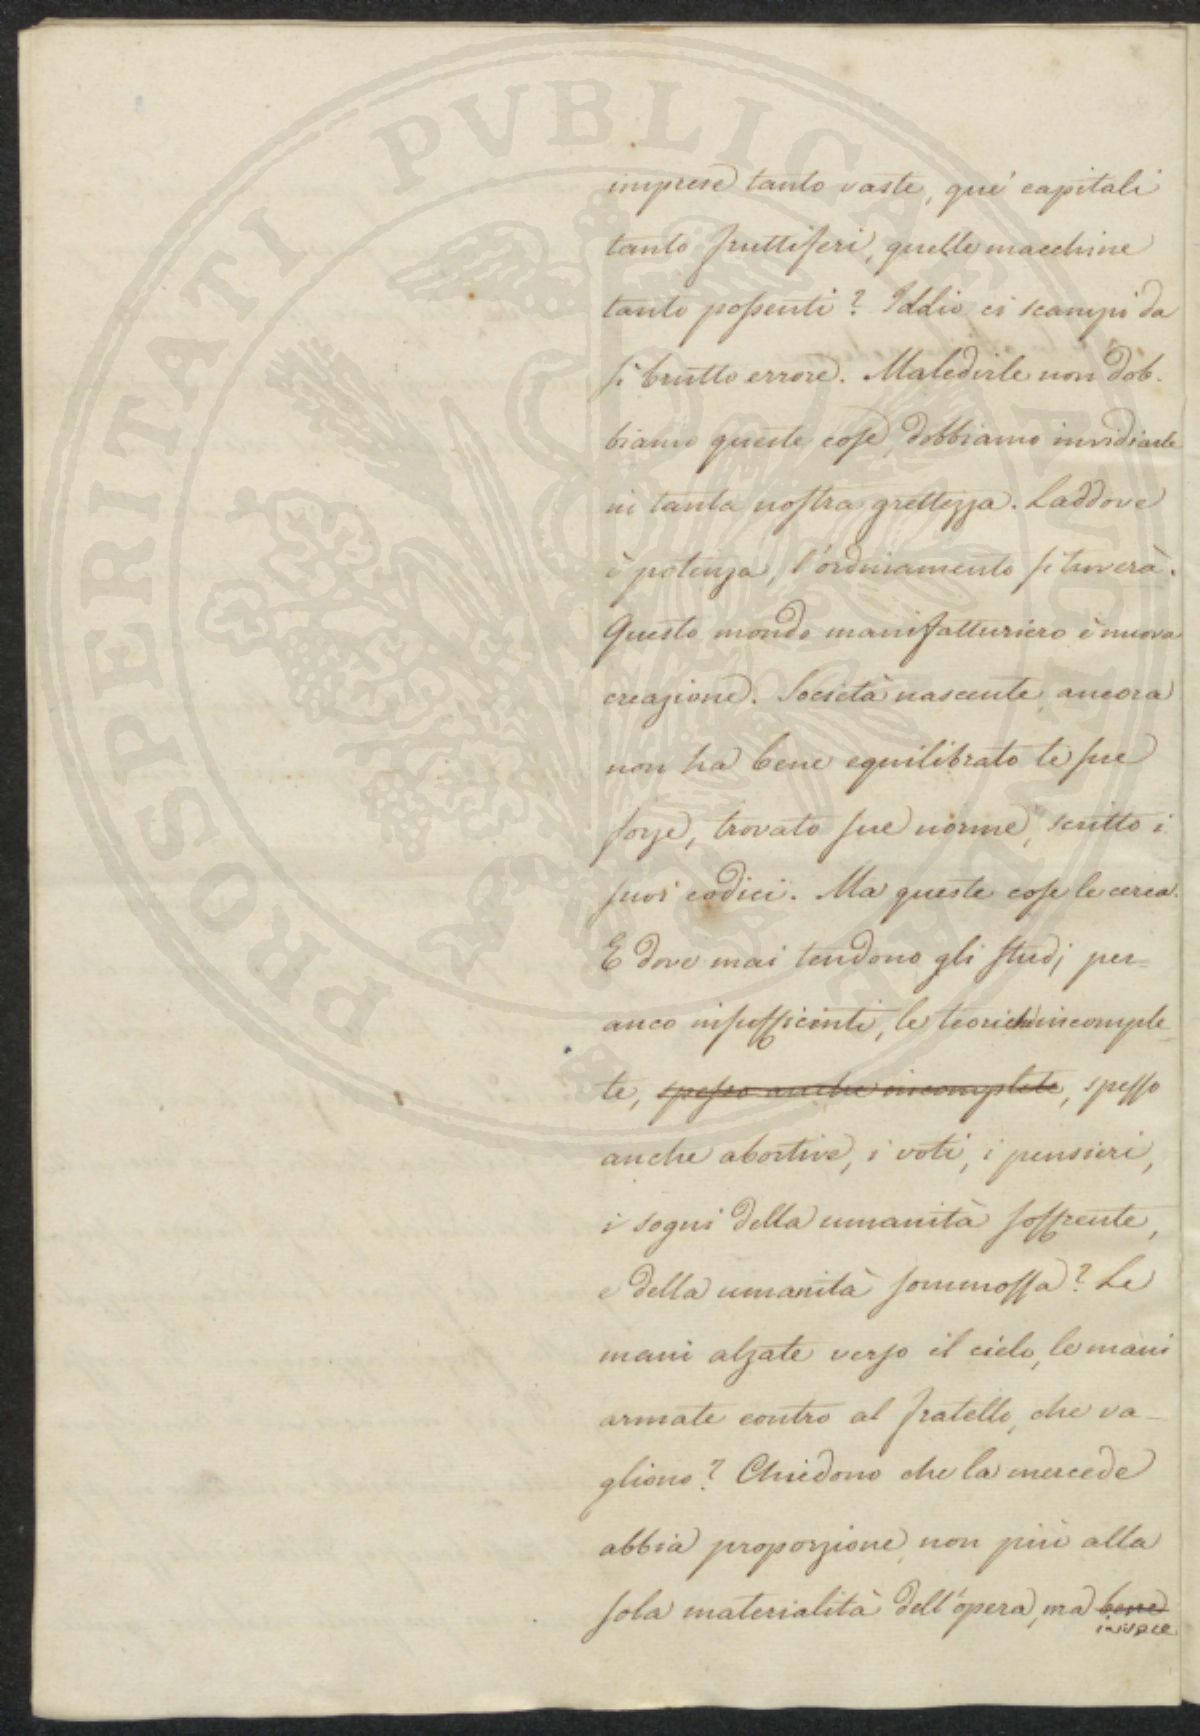 imprese tanto vaste, que' capitali
tanto fruttiferi, quelle macchine
tanto possenti? Iddio ci scampi da
sì brutto errore. Maledirle non dob-
biamo queste cose, dobbiamo invidiarle
in tanta nostra grettezza. Laddove
è potenza, l'ordinamento si troverà.
Questo mondo manifatturiero è nuova
creazione. Società nascente, ancora
non ha bene equilibrato le sue
forze, trovato sue norme, scritto i
suoi codici. Ma queste cose le cerca.
E dove mai tendono gli studj per=
anco insufficienti, le teoriche incomple-
te, spesso anche incomplete, spesso
anche abortive, i voti, i pensieri,
i sogni della umanità soffrente,
e della umanità sommossa? Le
mani alzate verso il cielo, le mani
armate contro al fratello, che va-
gliono? Chiedono che la mercede
abbia proporzione non più alla
sola materialità dell'opera, ma bene
invece
PROSPERITATI PVBLICAE